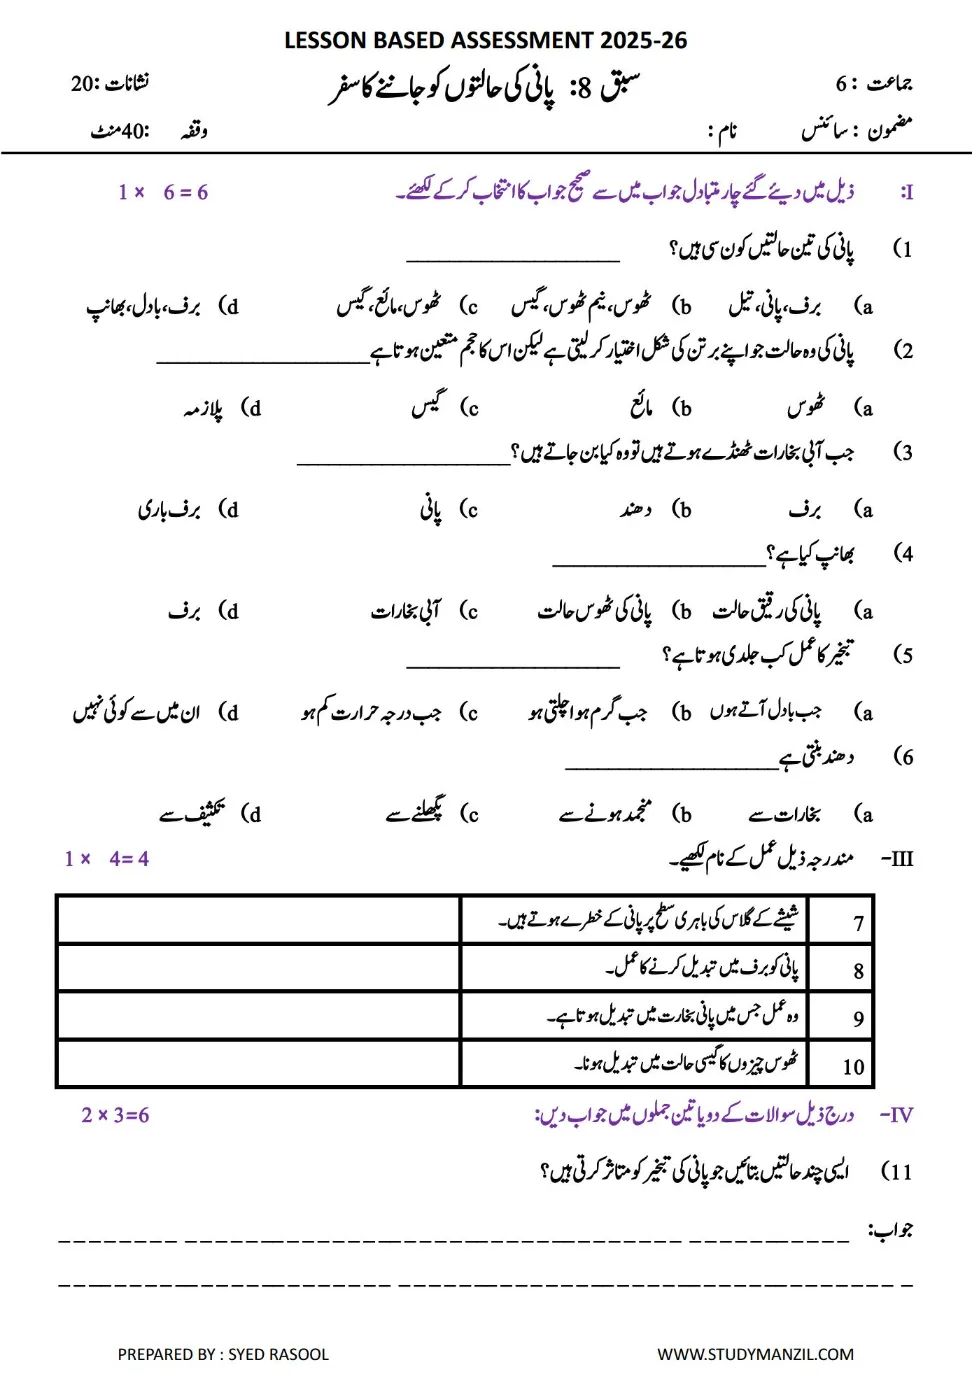 LESSON BASED ASSESSMENT 2025-26
جماعت : 6 سبق 8: پانی کی حالتوں کو جاننے کا سفر نشانات :20
مضمون : سائنس نام : وقفہ :40منٹ
I: ذیل میں دیئے گئے چار متبادل جواب میں سے صحیح جواب کا انتخاب کر کے لکھئے۔ 1 × 6 = 6
1) پانی کی تین حالتیں کون سی ہیں؟ ____________________
a) برف،پانی،تیل b) ٹھوس،نیم ٹھوس،گیس c) ٹھوس،مائع،گیس d) برف،بادل،بھانپ
2) پانی کی وہ حالت جو اپنے برتن کی شکل اختیار کر لیتی ہے لیکن اس کا حجم متعین ہوتا ہے____________________
a) ٹھوس b) مائع c) گیس d) پلازمہ
3) جب آبی بخارات ٹھنڈے ہوتے ہیں تو وہ کیا بن جاتے ہیں؟____________________
a) برف b) دھند c) پانی d) برف باری
4) بھانپ کیا ہے؟____________________
a) پانی کی رقیق حالت b) پانی کی ٹھوس حالت c) آبی بخارات d) برف
5) تبخیر کا عمل کب جلدی ہوتا ہے؟ ____________________
a) جب بادل آتے ہوں b) جب گرم ہوا چلتی ہو c) جب درجہ حرارت کم ہو d) ان میں سے کوئی نہیں
6) دھند بنتی ہے____________________
a) بخارات سے b) منجمد ہونے سے c) پگھلنے سے d) تکثیف سے
III- مندرجہ ذیل عمل کے نام لکھیے۔ 1 × 4= 4
7 شیشے کے گلاس کی باہری سطح پر پانی کے خطرے ہوتے ہیں۔
8 پانی کو برف میں تبدیل کرنے کا عمل۔
9 وہ عمل جس میں پانی بخارت میں تبدیل ہوتا ہے۔
10 ٹھوس چیزوں کا گیسی حالت میں تبدیل ہونا۔
IV- درج ذیل سوالات کے دو یا تین جملوں میں جواب دیں: 2 × 3=6
11) ایسی چند حالتیں بتائیں جو پانی کی تبخیر کو متاثر کرتی ہیں؟
جواب: _ _ _ _ _ _ _ _ _ _ _ _ _ _ _ _ _ _ _ _ _ _ _ _ _ _ _ _ _ _
_ _ _ _ _ _ _ _ _ _ _ _ _ _ _ _ _ _ _ _ _ _ _ _ _ _ _ _ _ _
PREPARED BY : SYED RASOOL WWW.STUDYMANZIL.COM